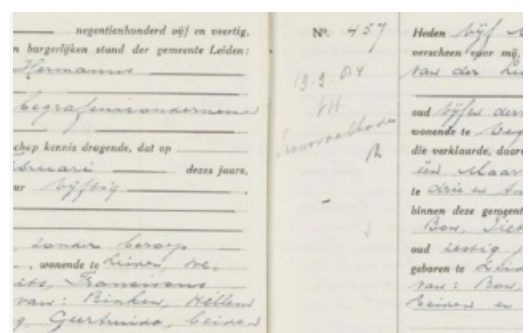 negentienhonderd vijf en veertig.
n burgerlijken stand der gemeente Leiden:
Hermanus
begrafenisondernemer
chap kennis dragende, dat op
bruari dezes jaars,
ur vijftig
zonder beroep
, wonende te Leiden, we
Franciscus
van: Binken, Willem
g, Geertruida, beiden
Nº. 457
19.9.04
VH
R
Heden vijf
verscheen voor mij,
van der
oud vijf en der
wonende te
die verklaarde, daar
één Maar
te drie en
binnen deze gemeent
Bon,
oud zestig
geboren te Leid
van: Bon,
Leiden en